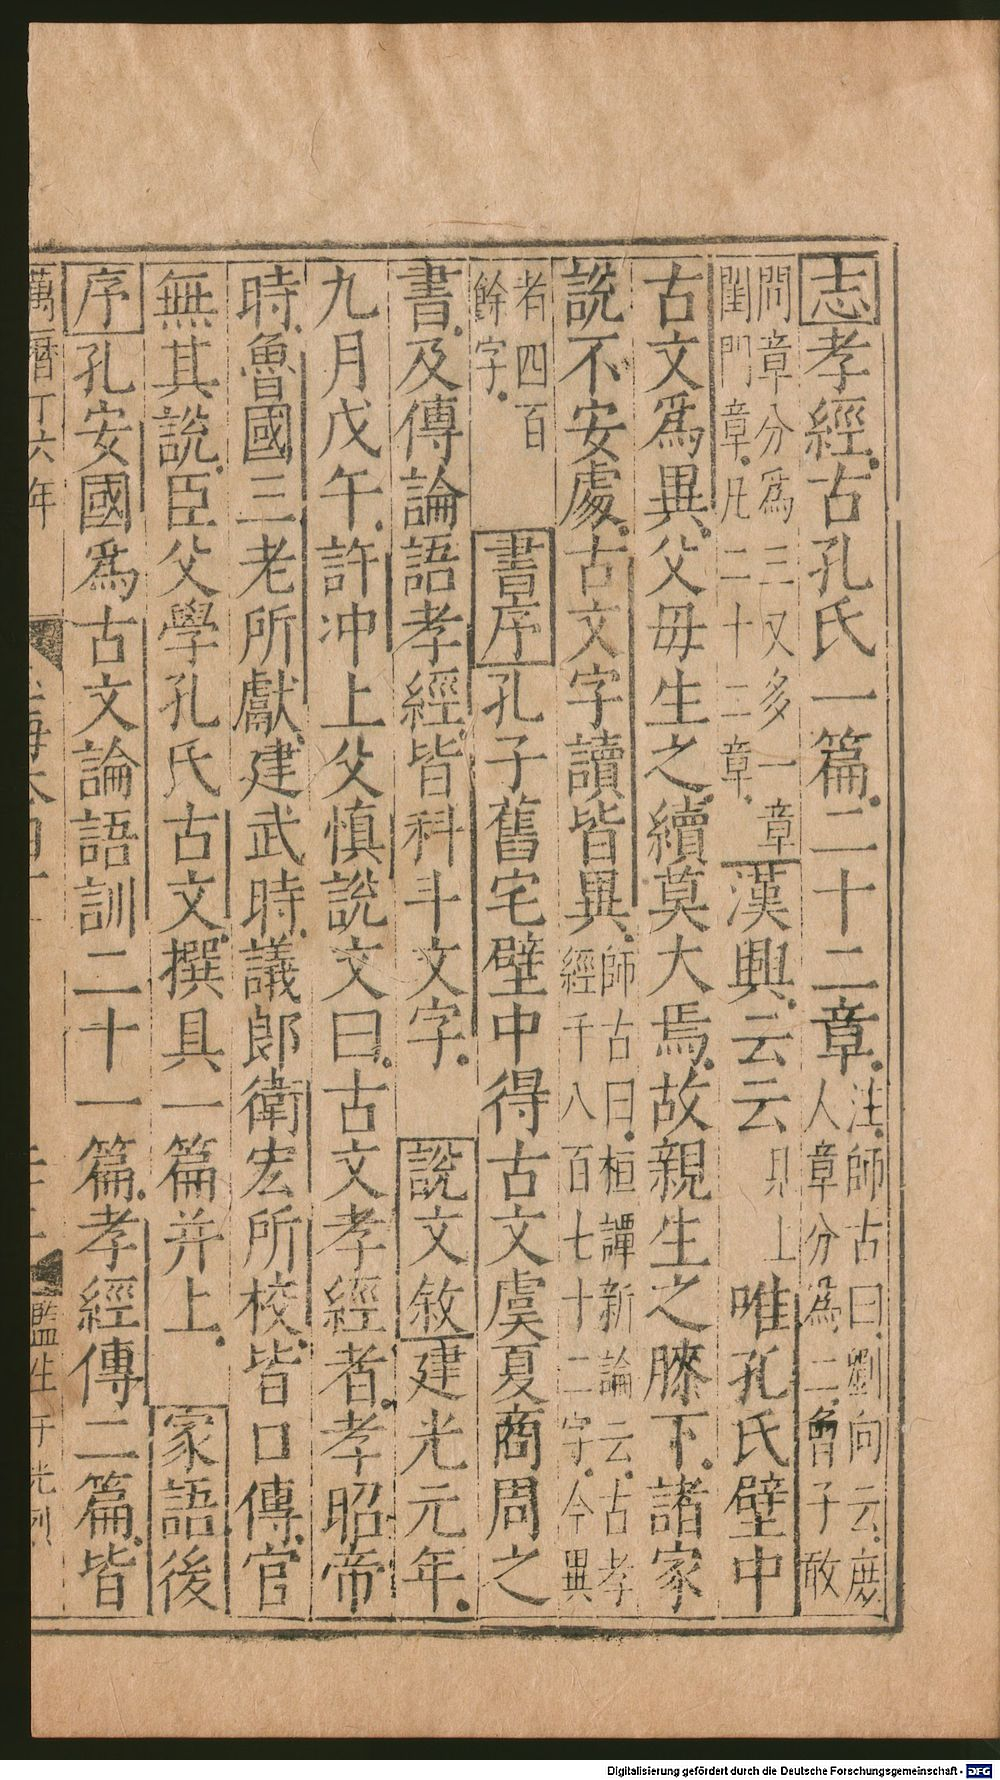 志孝經古孔氏一篇二十二章注師古曰劉向云庶人章分爲二曾子敢
問章分爲三又多一章閨門章凡二十二章漢興云云見上唯孔氏壁中
古文爲異父毋生之續莫大焉故親生之膝下諸家
說不安處古文字讀皆異師古曰桓譚新論云古孝經千八百七十二字今異
者四百餘字書序孔子舊宅壁中得古文虞夏商周之
書及傳論語孝經皆科斗文字說文敘建光元年
九月戊午許冲上父慎說文曰古文孝經者孝昭帝
時魯國三老所獻建武時議郎衛宏所校皆口傳官
無其說臣父學孔氏古文撰具一篇并上家語後
序孔安國爲古文論語訓二十一篇孝經傳二篇皆
萬曆丁六年 監生
Digitalisierung gefördert durch die Deutsche Forschungsgemeinschaft - DFG